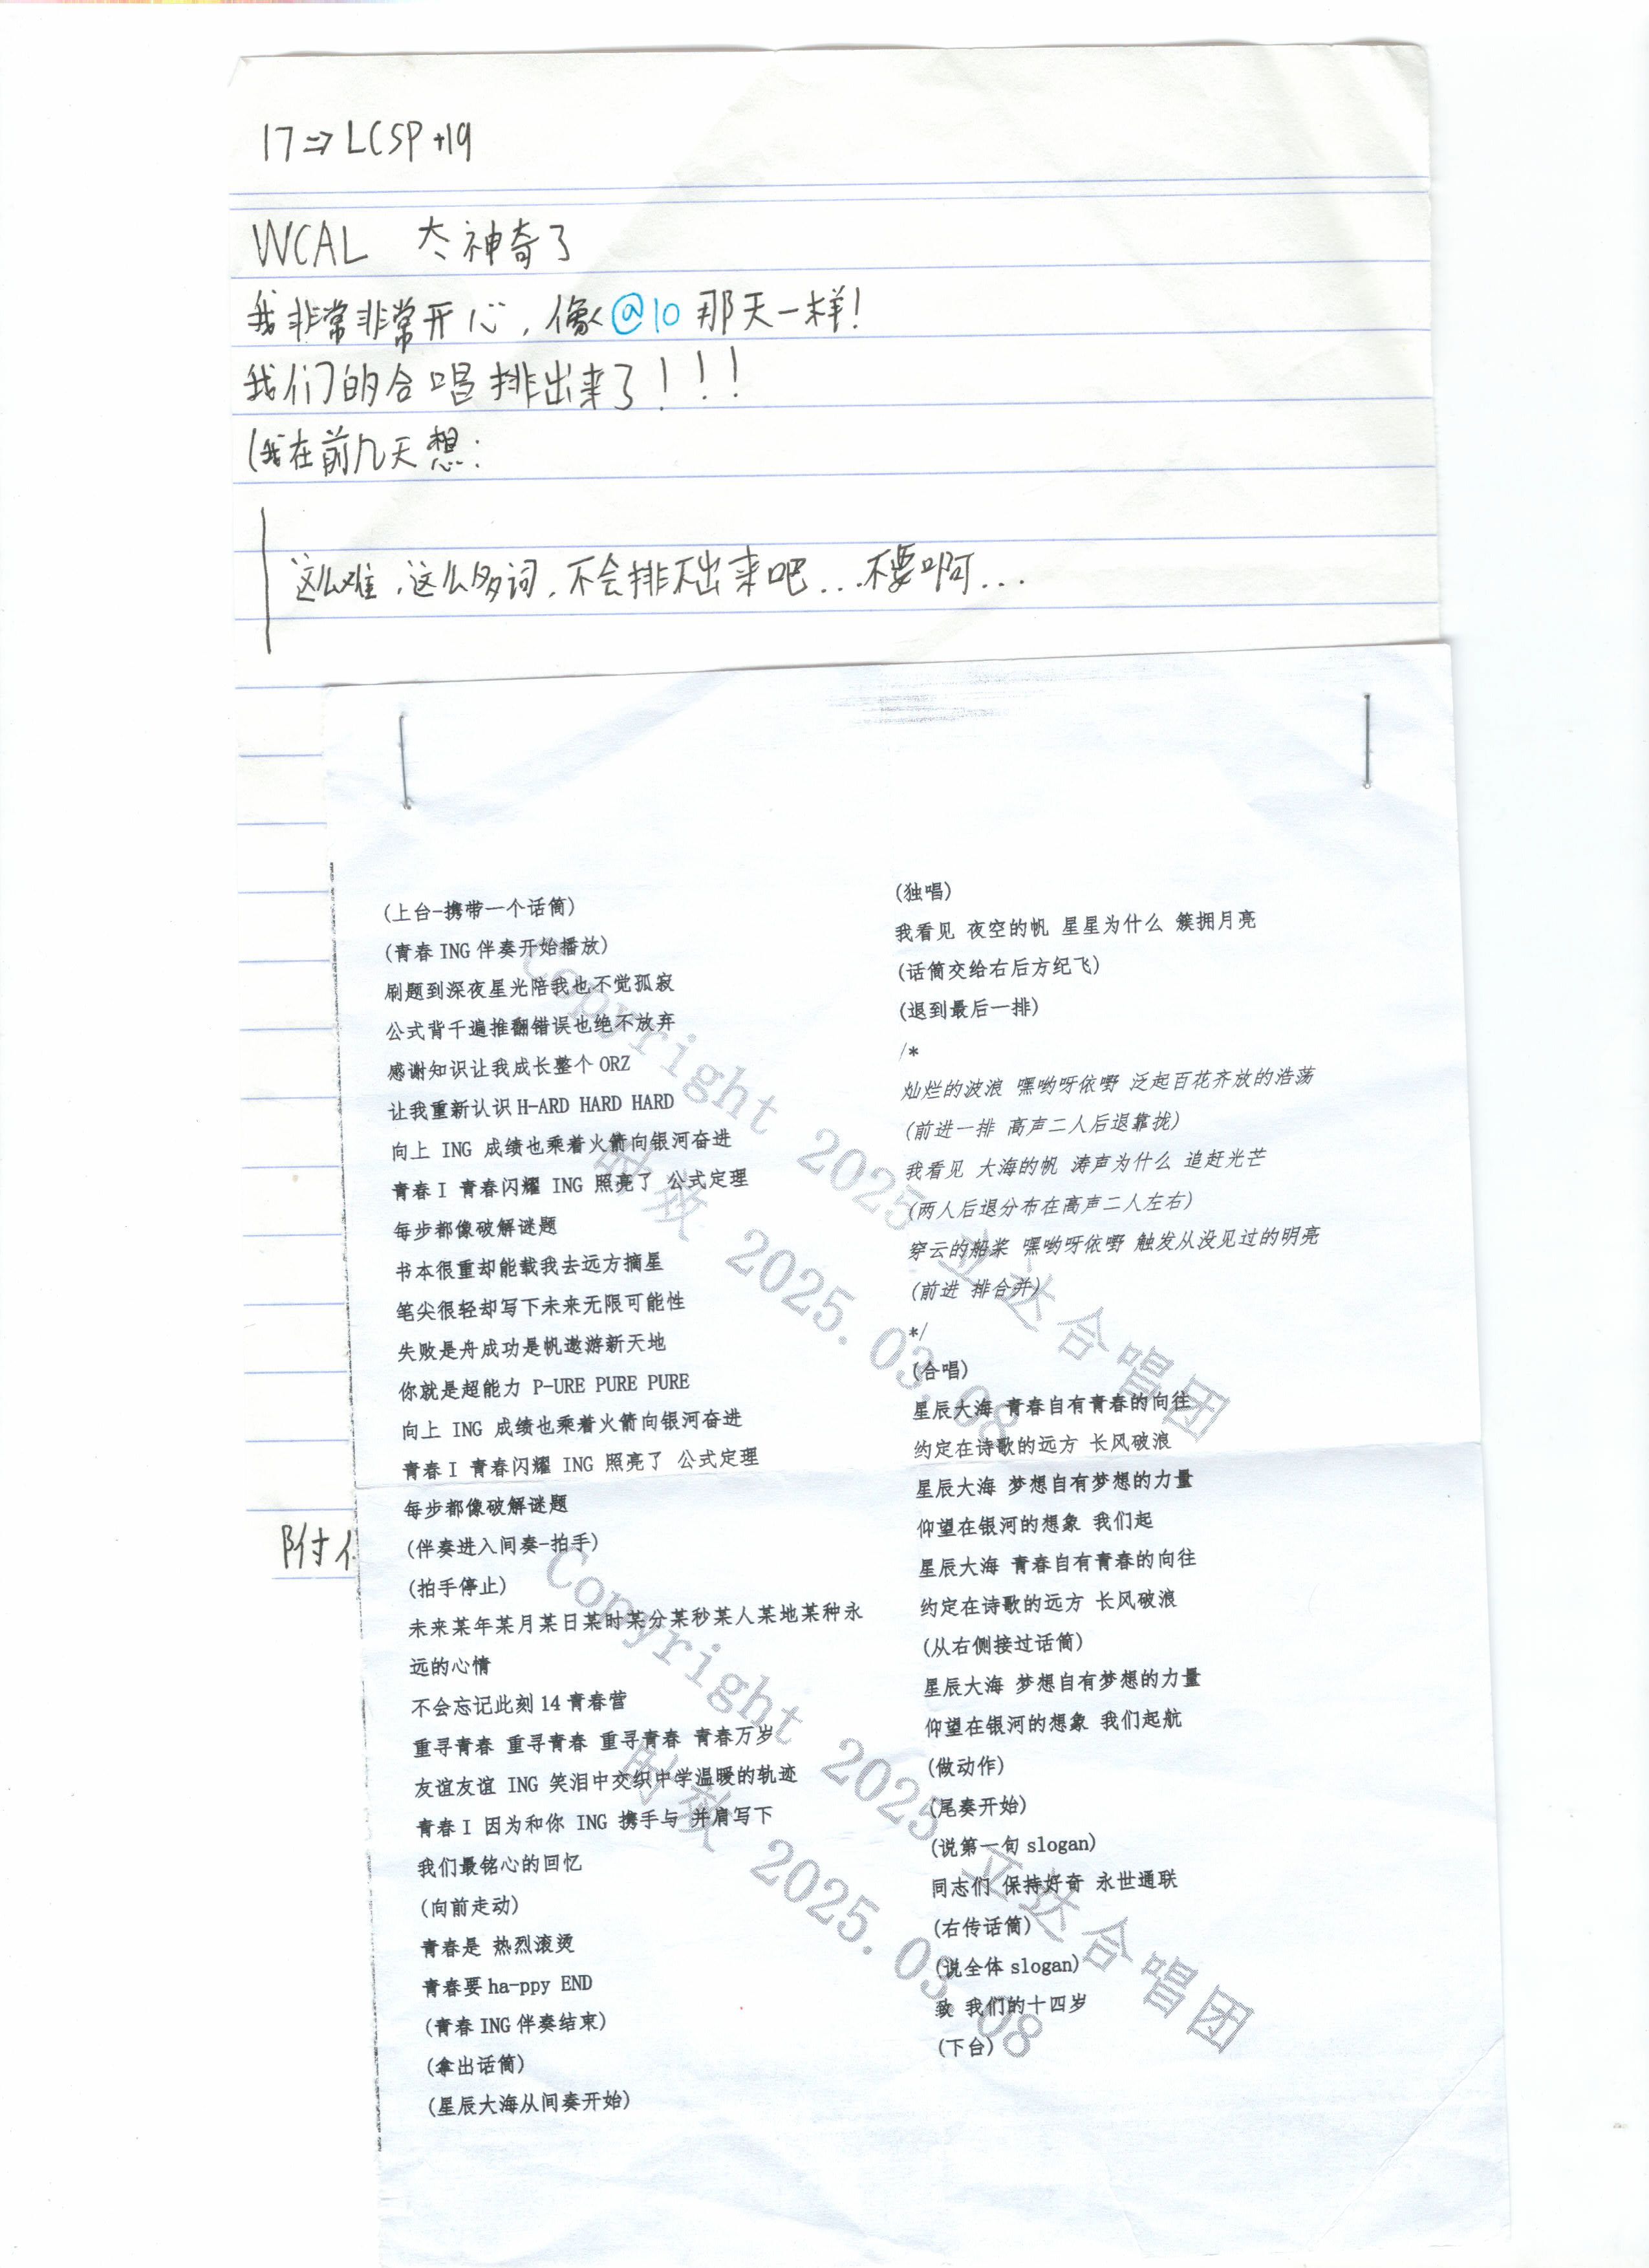 17⇒LCSP+19
WCAL 太神奇了
我非常非常开心，像@10那天一样！
我们的合唱排出来了！！！
(我在前几天想：
这么难，这么多词，不会排不出来吧...不要啊...
附
(上台-携带一个话筒)
(青春 ING 伴奏开始播放)
刷题到深夜星光陪我也不觉孤寂
公式背千遍推翻错误也绝不放弃
感谢知识让我成长整个 ORZ
让我重新认识 H-ARD HARD HARD
向上 ING 成绩也乘着火箭向银河奋进
青春 I 青春闪耀 ING 照亮了 公式定理
每步都像破解谜题
书本很重却能载我去远方摘星
笔尖很轻却写下未来无限可能性
失败是舟成功是帆遨游新天地
你就是超能力 P-URE PURE PURE
向上 ING 成绩也乘着火箭向银河奋进
青春 I 青春闪耀 ING 照亮了 公式定理
每步都像破解谜题
(伴奏进入间奏-拍手)
(拍手停止)
未来某年某月某日某时某分某秒某人某地某种永
远的心情
不会忘记此刻 14 青春营
重寻青春 重寻青春 重寻青春 青春万岁
友谊友谊 ING 笑泪中交织中学温暖的轨迹
青春 I 因为和你 ING 携手与 并肩写下
我们最铭心的回忆
(向前走动)
青春是 热烈滚烫
青春要 ha-ppy END
(青春 ING 伴奏结束)
(拿出话筒)
(星辰大海从间奏开始)
(独唱)
我看见 夜空的帆 星星为什么 簇拥月亮
(话筒交给右后方纪飞)
(退到最后一排)
/*
灿烂的波浪 嘿哟呀依嘢 泛起百花齐放的浩荡
(前进一排 高声二人后退靠拢)
我看见 大海的帆 涛声为什么 追赶光芒
(两人后退分布在高声二人左右)
穿云的船桨 嘿哟呀依嘢 触发从没见过的明亮
(前进 排合并)
*/
(合唱)
星辰大海 青春自有青春的向往
约定在诗歌的远方 长风破浪
星辰大海 梦想自有梦想的力量
仰望在银河的想象 我们起
星辰大海 青春自有青春的向往
约定在诗歌的远方 长风破浪
(从右侧接过话筒)
星辰大海 梦想自有梦想的力量
仰望在银河的想象 我们起航
(做动作)
(尾奏开始)
(说第一句 slogan)
同志们 保持好奇 永世通联
(右传话筒)
(说全体 slogan)
致 我们的十四岁
(下台)
Copyright 2025 立达合唱团
时效 2025.03.08
Copyright 2025 立达合唱团
时效 2025.03.08